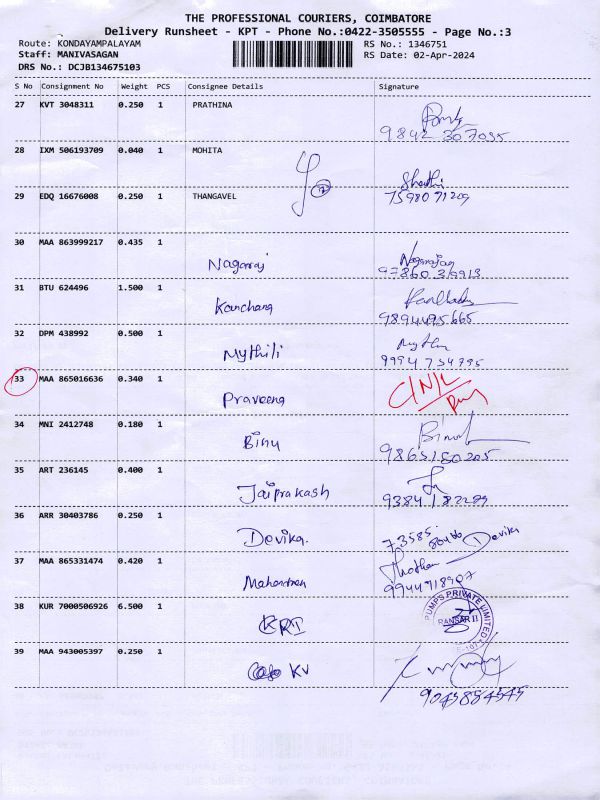 THE PROFESSIONAL COURIERS, COIMBATORE
Delivery Runsheet - KPT - Phone No.:0422-3505555 - Page No.:3
Route: KONDAYAMPALAYAM
Staff: MANIVASAGAN
DRS No.: DCJB134675103
RS No.: 1346751
RS Date: 02-Apr-2024
S No Consignment No Weight PCS Consignee Details Signature
27 KVT 3048311 0.250 1 PRATHINA
9842 307035
28 IXM 506193709 0.040 1 MOHITA
29 EDQ 16676008 0.250 1 THANGAVEL
Shanthi
7598071209
30 MAA 863999217 0.435 1
Nagaraj Nagarajan
31 BTU 624496 1.500 1
Kanchana
9894495665
32 DPM 438992 0.500 1
Mythili
9994 754795
33 MAA 865016636 0.340 1
Praveena
34 MNI 2412748 0.180 1
Binu
9865150205
35 ART 236145 0.400 1
Jaiprakash
36 ARR 30403786 0.250 1
Devika. 73585 Devika
37 MAA 865331474 0.420 1
Mahendran
9944718907
38 KUR 7000506926 6.500 1
KRI
PUMPS PRIVATE LIMITED
39 MAA 943005397 0.250 1
KV